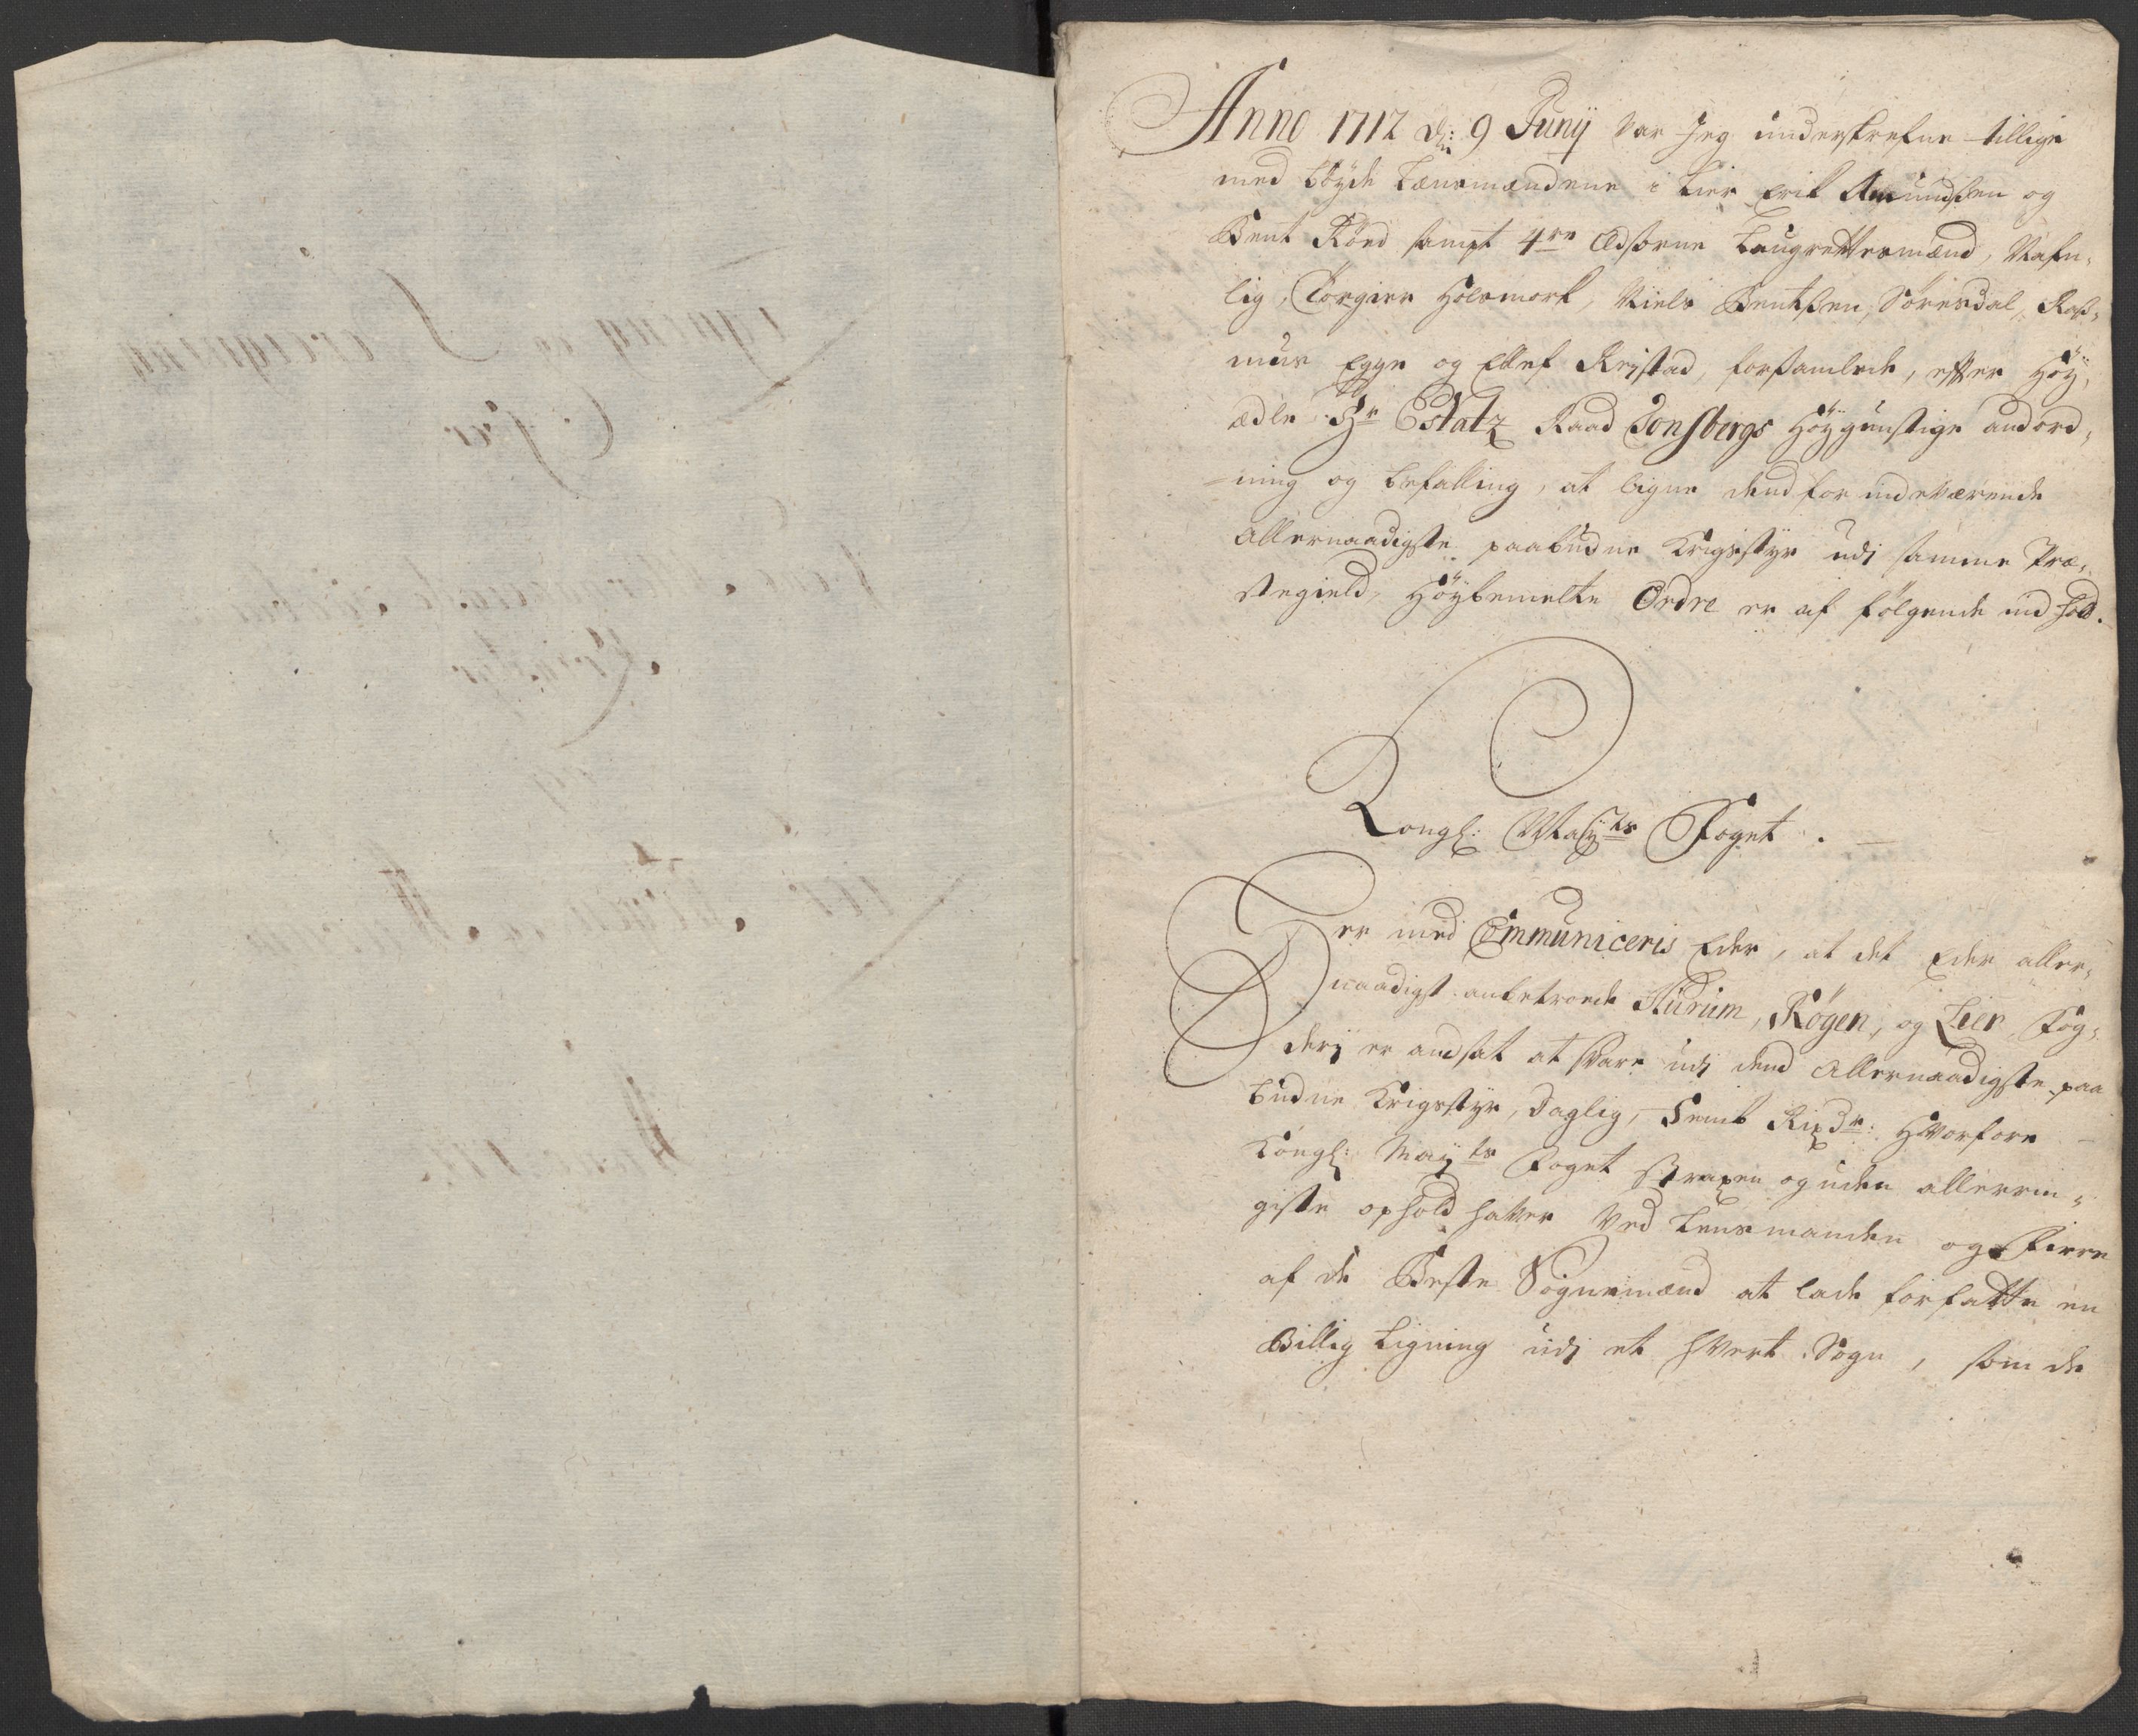 Anno 1712 d: 9 Junij var Jeg underskrefne tillige
med böyde Lænsmændene i Lier Erik Amundsen og
Bent Röed sampt 4re Edsorne Laugrettesmænd, Nafn-
lig, Torgier Holsmork, Niels Bentsen, Sörisdal, Ras-
mus Egge og Ellef Reistad, forsamlede, efter Höy-
ædle Hr Estatz Raad Tonsbergs Höygunstige andord-
-ning og befalling, at ligne dend for indeværende
allernaadigste paabudne Krigsstyr udj samme Præ-
stegield, Höybemelte Ordre er af fölgende indhold.
Kongl: Mayts Foget.
Her med Communiceris Eder, at det Eder aller-
naadigst anbetroede Hurum, Rögen, og Lier Fog-
derj er andsat at svare udj dend Allernaadigste paa
budne Krigsstyr, Daglig, Femb Rixdr: Hvorfore
Kongl: Mayts Foget straxen og uden allerrin-
giste ophold haver ved Lensmanden og Fiere
af de Beste Sognemænd at lade forfatte en
Billig Ligning udj et hvert Sogn, som de